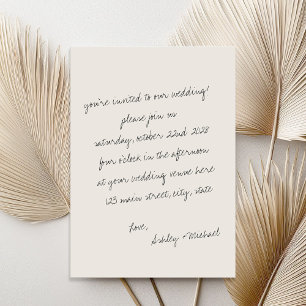 you're invited to our wedding!
please join us
saturday, october 22nd 2028
four o'clock in the afternoon
at your wedding venue here
123 main street, city, state
Love,
Ashley + Michael